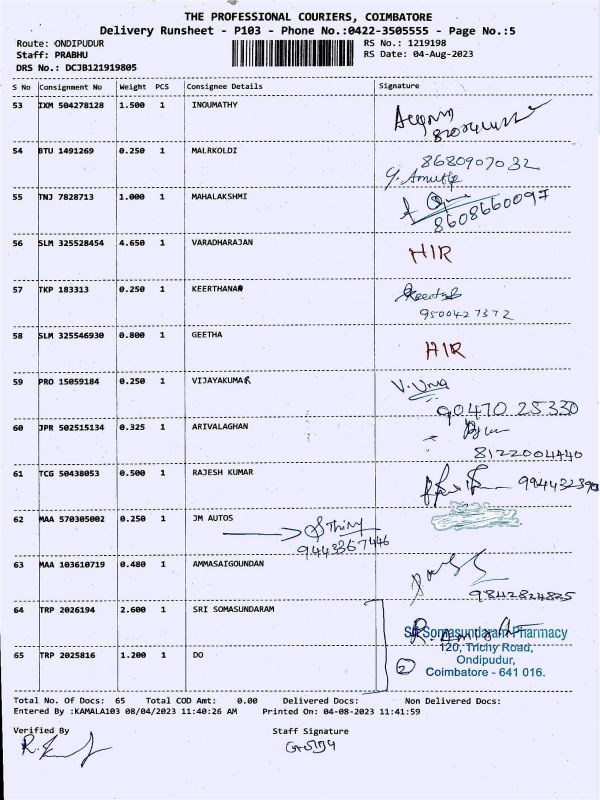 THE PROFESSIONAL COURIERS, COIMBATORE
Delivery Runsheet - P103 - Phone No.:0422-3505555 - Page No.:5
Route: ONDIPUDUR RS No.: 1219198
Staff: PRABHU RS Date: 04-Aug-2023
DRS No.: DCJB121919805
S No Consignment No Weight PCS Consignee Details Signature
53 IXM 504278128 1.500 1 INOUMATHY
54 BTU 1491269 0.250 1 MALRKOLDI 8680907032
Y. Amutha
55 TNJ 7828713 1.000 1 MAHALAKSHMI
8608660097
56 SLM 325528454 4.650 1 VARADHARAJAN HIR
57 TKP 183313 0.250 1 KEERTHANAR
9500427372
58 SLM 325546930 0.800 1 GEETHA HIR
59 PRO 15059184 0.250 1 VIJAYAKUMAR V. Uma
90470 25330
60 JPR 502515134 0.325 1 ARIVALAGHAN
8122004440
61 TCG 50438053 0.500 1 RAJESH KUMAR
62 MAA 570305002 0.250 1 JM AUTOS
9443367446
63 MAA 103610719 0.480 1 AMMASAIGOUNDAN
9842824825
64 TRP 2026194 2.600 1 SRI SOMASUNDARAM
Sri Somasundaram Pharmacy
120, Trichy Road,
65 TRP 2025816 1.200 1 DO 2 Ondipudur,
Coimbatore - 641 016.
Total No. Of Docs: 65 Total COD Amt: 0.00 Delivered Docs: Non Delivered Docs:
Entered By :KAMALA103 08/04/2023 11:40:26 AM Printed On: 04-08-2023 11:41:59
Verified By Staff Signature